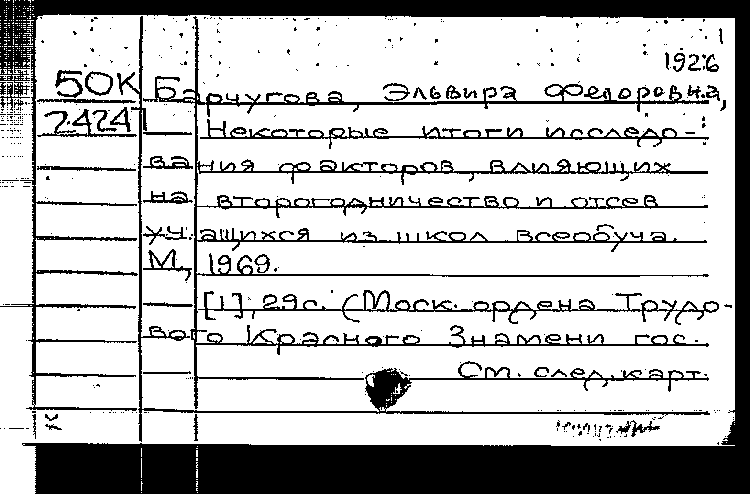 1
1926
50К Барчугова, Эльвира Федоровна,
7.4247 Некоторые итоги исследо-
вания факторов, влияющих
на второгодничество и отсев
учащихся из школ всеобуча.
М., 1969.
[1], 29с. (Моск. ордена Трудо-
вого Красного Знамени гос.
См. след. карт.